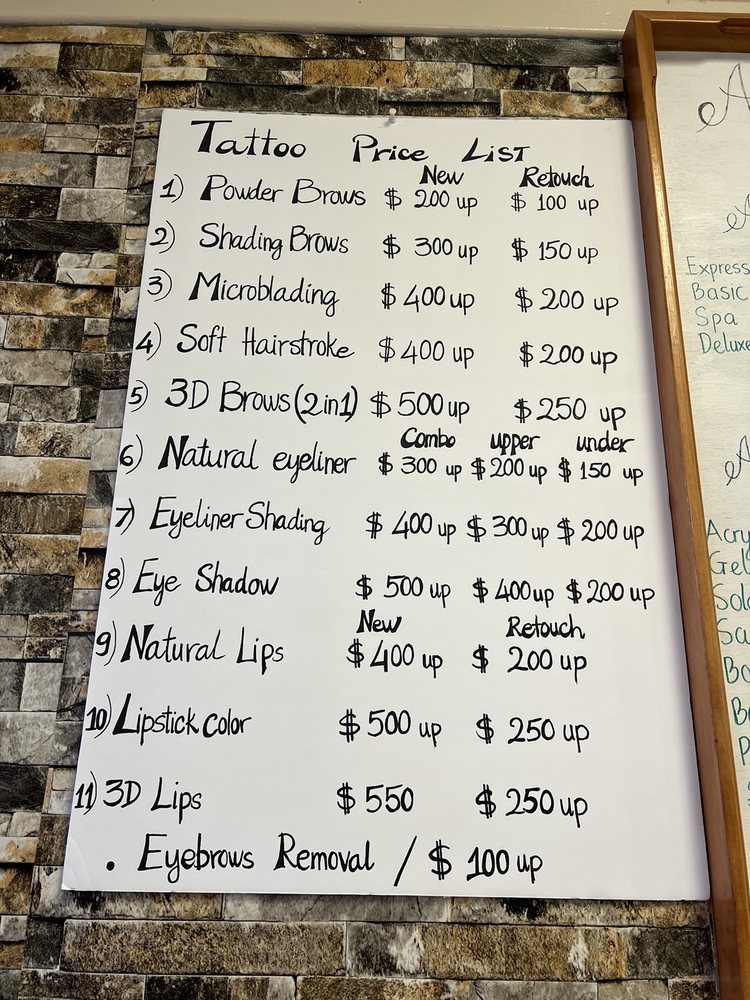 Tattoo Price List
New Retouch
1) Powder Brows $ 200 up $ 100 up
2) Shading Brows $ 300 up $ 150 up
3) Microblading $ 400 up $ 200 up
4) Soft Hairstroke $ 400 up $ 200 up
5) 3D Brows (2in1) $ 500 up $ 250 up
Combo upper under
6) Natural eyeliner $ 300 up $ 200 up $ 150 up
7) Eyeliner Shading $ 400 up $ 300 up $ 200 up
8) Eye Shadow $ 500 up $ 400 up $ 200 up
New Retouch
9) Natural Lips $ 400 up $ 200 up
10) Lipstick color $ 500 up $ 250 up
11) 3D Lips $ 550 $ 250 up
• Eyebrows Removal / $ 100 up
Express
Basic
Spa
Deluxe